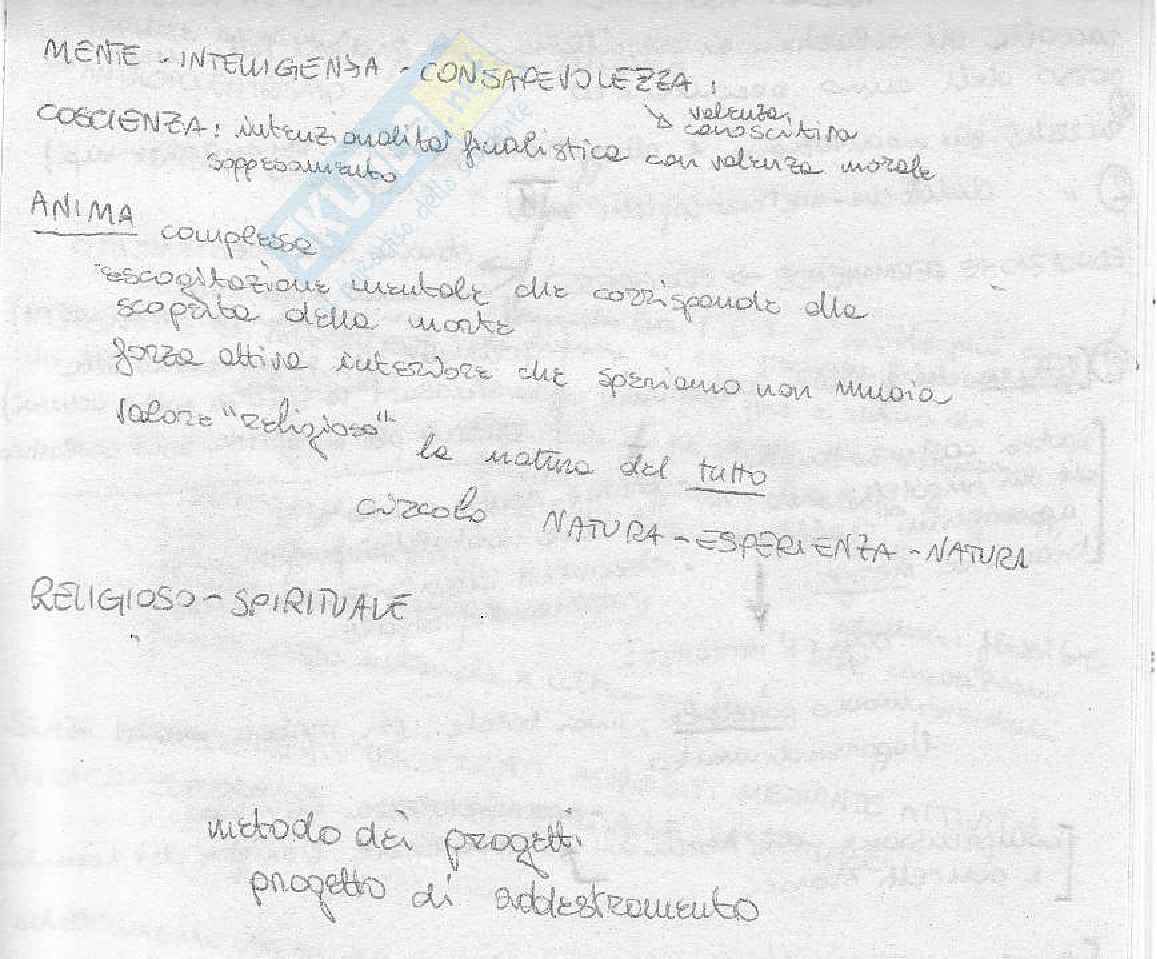 MENTE - INTELLIGENZA - CONSAPEVOLEZZA :
valenza
conoscitiva
COSCIENZA: intenzionalità finalistica con valenza morale
soppesamento
ANIMA complessa
escogitazione mentale che corrisponde alla
scoperta della morte
forza attiva interiore che speriamo non muoia
valore "religioso"
la natura del tutto
circolo NATURA - ESPERIENZA - NATURA
RELIGIOSO - SPIRITUALE
metodo dei progetti
progetto di addestramento